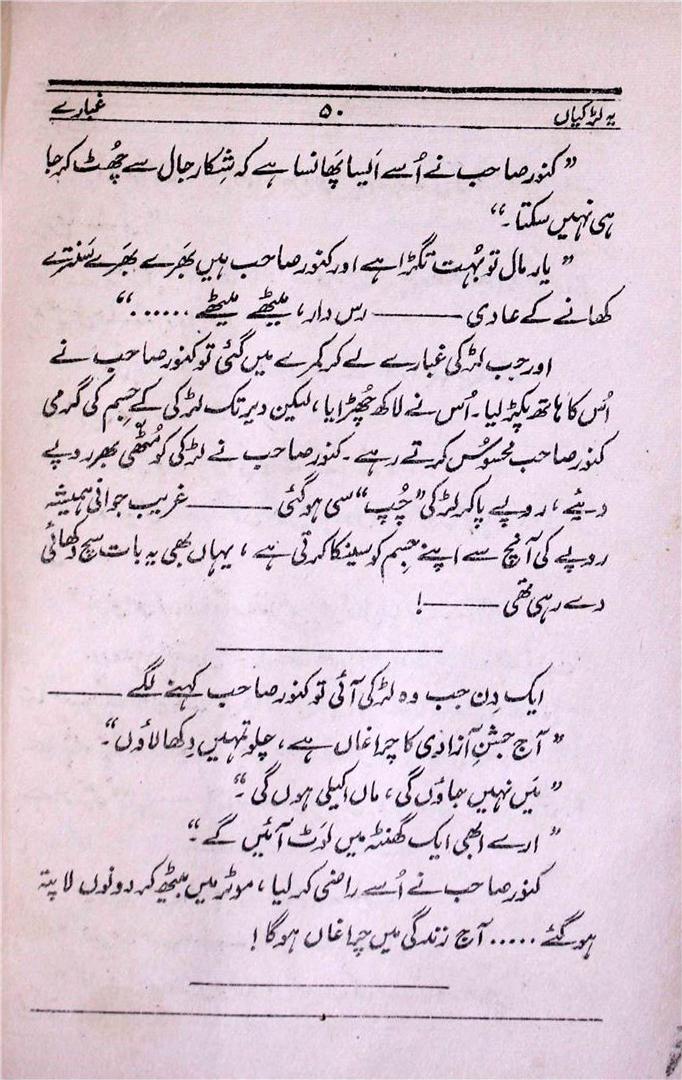 یہ لڑکیاں ۵۰ غبارے
”کنور صاحب نے اُسے اَیسا پھانسا ہے کہ شِکار جال سے چھُٹ کر جا
ہی نہیں سکتا۔“
”یار مال تو بہُت تگڑا ہے اور کنور صاحب ہیں بھَرے بھَرے سَنترے
کھانے کے عادی ——— رس دار، میٹھے میٹھے ......“
اور جب لڑکی غبارے لے کر کمرے میں گئی تو کنور صاحب نے
اُس کا ہاتھ پکڑ لیا۔ اُس نے لاکھ چھُڑایا، لیکن دیر تک لڑکی کے جِسم کی گرمی
کنور صاحب محسوُس کرتے رہے۔ کنور صاحب نے لڑکی کو مُٹھّی بھر روپے
دیئے، روپے پا کر لڑکی ”چُپ“ سی ہو گئی ——— غریب جوانی ہمیشہ
روپے کی آنچ سے اپنے جِسم کو سینکا کرتی ہے، یہاں بھی یہ بات سچ دکھائی
دے رہی تھی ——— !
ایک دِن جب وہ لڑکی آئی تو کنور صاحب کہنے لگے ———
”آج جشنِ آزادی کا چراغاں ہے، چلو تمہیں دِکھا لاؤں“۔
”مَیں نہیں جاؤں گی، ماں اکیلی ہوں گی۔“
”ارے ابھی ایک گھنٹہ میں لوَٹ آئیں گے۔“
کنور صاحب نے اُسے راضی کر لیا، موٹر میں بیٹھ کر دونوں لا پتہ
ہو گئے ..... آج زندگی میں چراغاں ہوگا!